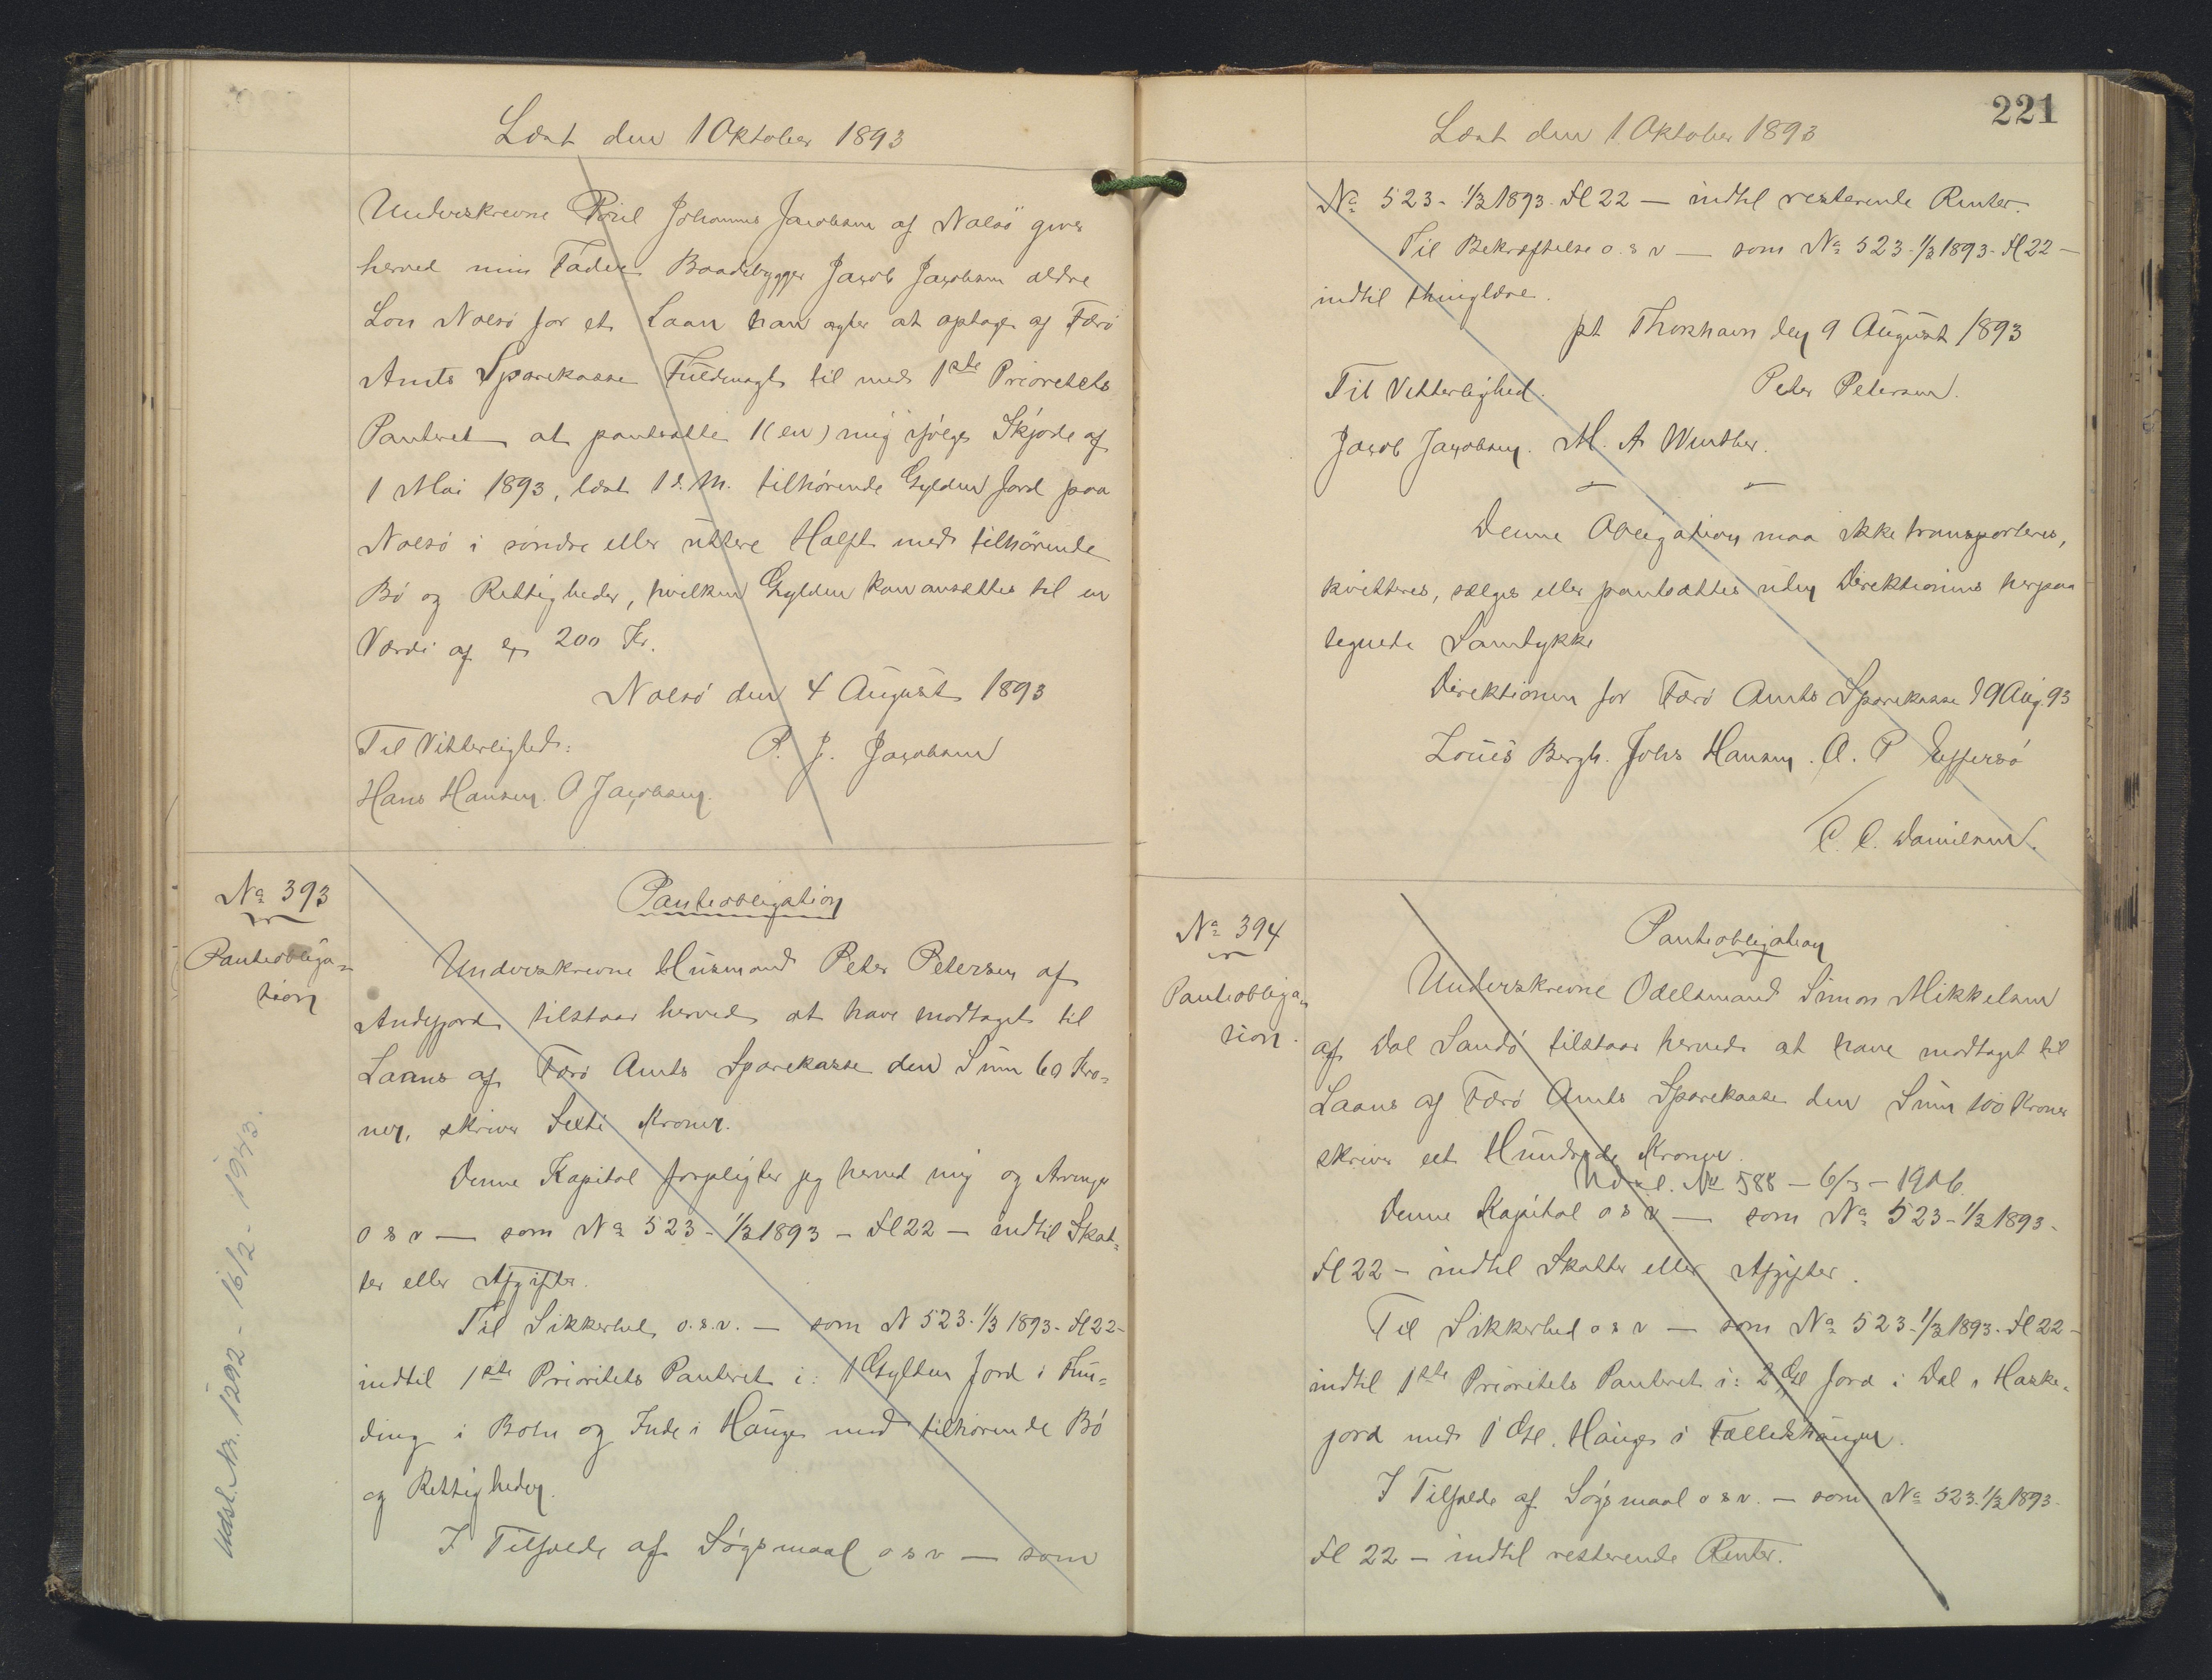 Læst den 1 Oktober 1893
Underskrevne Poul Johannes Jacobsen af Nolsö giver
herved min Fader Baadebygger Jacob Jacobsen ældre
Nolsö for et Laan han agter at optage af Færö
Amts Sparekasse Fuldmagt til med 1ste Prioritets
Panteret at pantsætte 1 (en) mig ifølge Skjøde af
1 Mai 1893, læst 1 d. M. tilhørende Gylden Jord paa
Nolsö i søndre eller üttere Halft med tilhörende
Bö og Rettigheder, hvilken Gylden kan ansættes til en
Værdi af 200 Kr.
Nolsö den 4 August 1893
Til Vitterlighed: P. J. Jacobsen
Hans Hansen. O Jacobsen.
No 393
Panteobliga-
tion
Panteobligation
Underskrevne Husmand Peter Petersen af
Andefjord tilstaar herved at have modtaget til
Laans af Færö Amts Sparekasse den Sum 60 Kro-
ner, skriver Sexti Kroner.
Denne Kapital forpligter jeg herved mig og Arvinger
o s v — som No 523 - 1/3 1893 - Fl 22 — indtil Skat-
ter eller Afgifter.
Til Sikkerhed o.s.v. — som N 523. 1/3 1893 - Fl 22 -
indtil 1ste Prioritets Panteret i: 1 Gylden Jord i Fun-
ding i Botn og Inde i Hauge med tilhørende Bö
og Rettigheder.
I Tilfælde af Søgsmaal o s v — som
Udsl. Nr. 1292 - 16/2 - 1943.
221
Læst den 1 Oktober 1893
No 523 - 1/3 1893 - Fl 22 — indtil resterende Renter.
Til Bekræftelse o. s v — som No 523 - 1/3 1893 - Fl 22 —
indtil thinglæse.
pt Thorshavn den 9 August 1893
Til Vitterlighed. Peter Petersen.
Jacob Jacobsen. M. A Winther.
Denne Obligation maa ikke transporteres,
kvitteres, sælges eller pantsættes uden Direktionens herpaa
tegnede Samtykke
Direktionen for Færö Amts Sparekasse d 9 Aug. 93
Louis Bergh. Johs Hansen. O. P Effersö
C. C. Danielsen.
No 394
Panteobliga-
tion.
Panteobligation
Underskrevne Odelsmand Simon Mikkelsen
af Dal Sandö tilstaar herved at have modtaget til
Laans af Færö Amts Sparekasse den Sum 100 Kroner
skriver eet Hundrede Kroner.
Udsl. No 588 — 6/3 — 1906.
Denne Kapital o s v — som No 523 - 1/3 1893 -
Fl 22 — indtil Skatter eller Afgifter.
Til Sikkerhed o s v — som No 523 - 1/3 1893 - Fl 22 -
indtil 1ste Prioritets Panteret i: 2 Gl Jord i Dal i Harke-
jord med 1 Gl. Hauge i Fælledshaugen.
I Tilfælde af Søgsmaal o s v. — som No 523. 1/3 1893 -
Fl 22 — indtil resterende Renter.